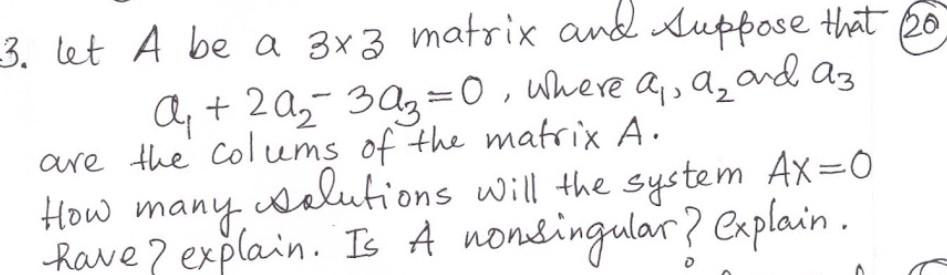 3. let A be a 3x3 matrix and suppose that (20
a₁ + 2a₂ - 3a₃ = 0 , where a₁, a₂ and a₃
are the colums of the matrix A.
How many solutions will the system AX=0
have? explain. Is A nonsingular? Explain.